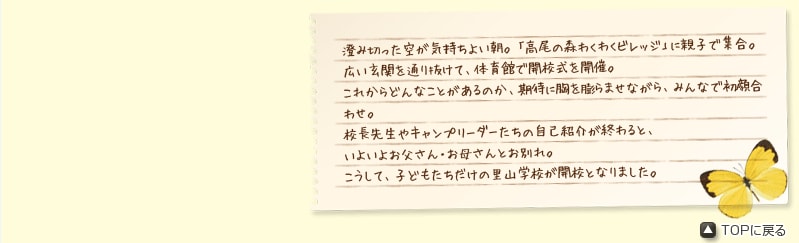 澄み切った空が気持ちよい朝。「高尾の森わくわくビレッジ」に親子で集合。
広い玄関を通り抜けて、体育館で開校式を開催。
これからどんなことがあるのか、期待に胸を膨らませながら、みんなで初顔合
わせ。
校長先生やキャンプリーダーたちの自己紹介が終わると、
いよいよお父さん・お母さんとお別れ。
こうして、子どもたちだけの里山学校が開校となりました。
TOPに戻る